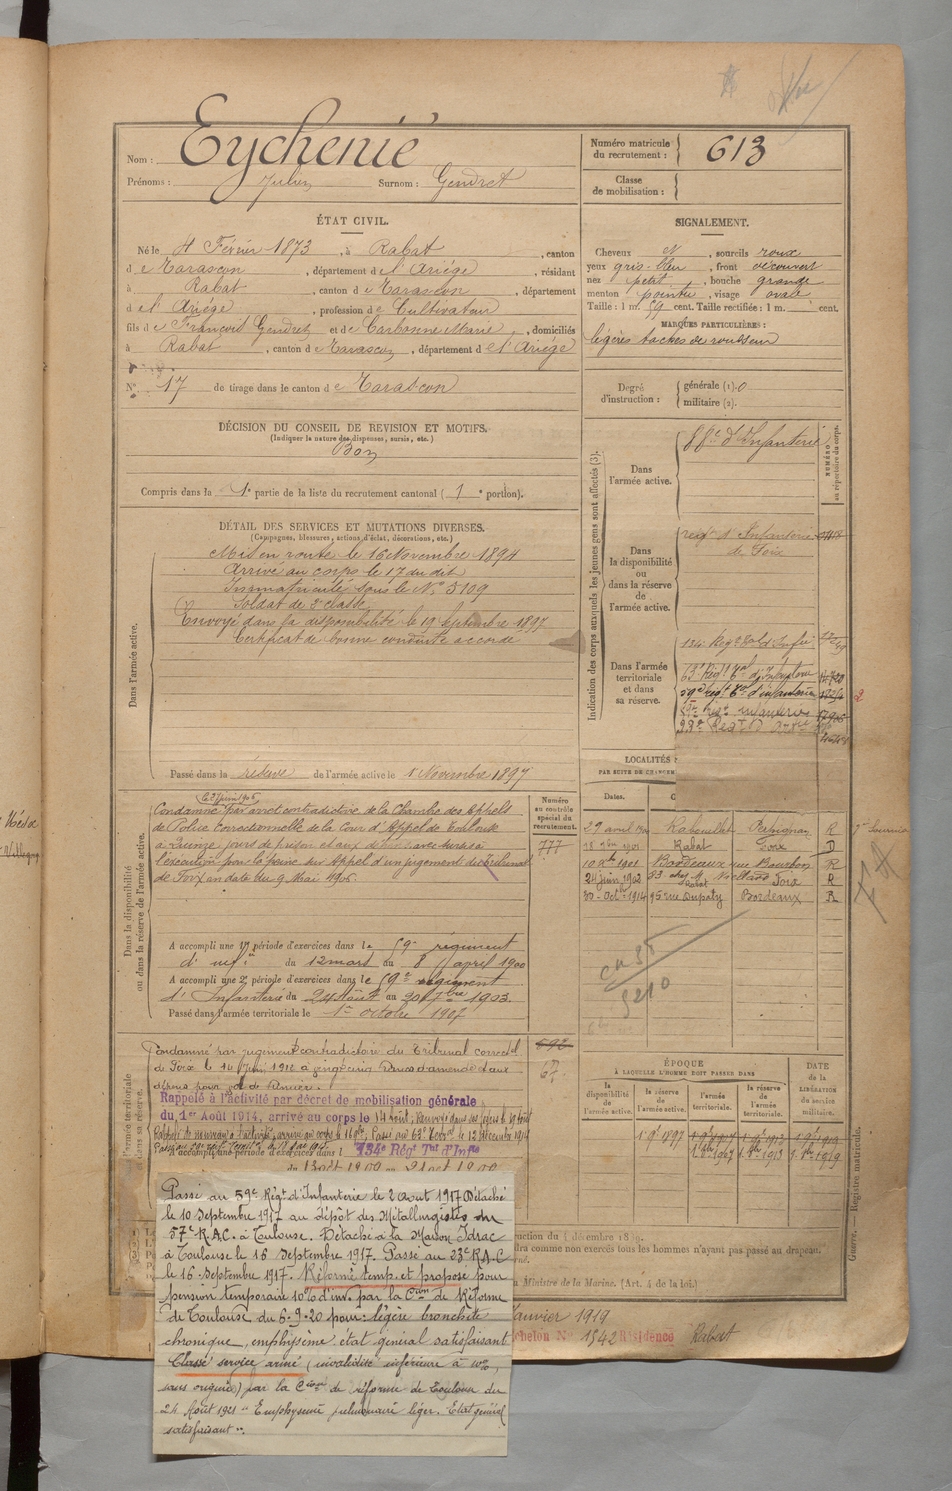 Nom : Eychenié
Prénoms : Julien Surnom : Gendret
Numéro matricule du recrutement : 613
Classe de mobilisation :
ÉTAT CIVIL.
Né le 4 Février 1873, à Rabat, canton
de Tarascon, département de l'Ariége, résidant
à Rabat, canton de Tarascon, département
de l'Ariége, profession de Cultivateur
fils de François Gendret et de Carbonne Marie, domiciliés
à Rabat, canton de Tarascon, département de l'Ariége
N° 17 de tirage dans le canton de Tarascon
SIGNALEMENT.
Cheveux N, sourcils roux
yeux gris-bleu, front découvert
nez petit, bouche grande
menton pointu, visage ovale
Taille : 1 m. 59 cent. Taille rectifiée : 1 m. cent.
MARQUES PARTICULIÈRES :
légères taches de rousseur
Degré d'instruction : générale (1). 0
militaire (2).
DÉCISION DU CONSEIL DE REVISION ET MOTIFS.
(Indiquer la nature des dispenses, sursis, etc.)
Bon
Compris dans la 1e partie de la liste du recrutement cantonal (1e portion).
DÉTAIL DES SERVICES ET MUTATIONS DIVERSES.
(Campagnes, blessures, actions d'éclat, décorations, etc.)
Dans l'armée active.
Mis en route le 16 Novembre 1894
Arrivé au corps le 17 du dit
Immatriculé sous le N° 5109
Soldat de 2e classe
Envoyé dans la disponibilité le 19 Septembre 1897
Certificat de bonne conduite accordé
Passé dans la réserve de l'armée active le 1 Novembre 1897
Indication des corps auxquels les jeunes gens sont affectés (3).
NUMÉRO au répertoire du corps.
Dans l'armée active.
88e d'Infanterie
Dans la disponibilité ou dans la réserve de l'armée active.
régt d'Infanterie
de Foix
Dans l'armée territoriale et dans sa réserve.
134e Régt Tal d'Infie
63e Régt Tal d'Infanterie
59e régt Tal d'infanterie
LOCALITÉS
PAR SUITE DE CHANGEM
Dates.
29 avril Rabouillet Perpignan R
18 Rabat Foix D
10 1901 Bordeaux rue Bourbon R
24 juin 1902 Rabat Foix R
30 Octe 1914 95 rue Dupaty Bordeaux R
Dans la disponibilité ou dans la réserve de l'armée active.
Numéro au contrôle spécial du recrutement.
777
le 27 juin 1906
Condamné par arrêt contradictoire de la Chambe des Appels
de Police correctionnelle de la Cour d'Appel de Toulouse
à quinze jours de prison et aux dépens avec sursis à
l'exécution pour la peine sur Appel d'un jugement du Tribunal
de Foix en date du 9 Mai 1906.
A accompli une 1e période d'exercices dans le 59e régiment
d'infie du 12 mars au 8 avril 1900
A accompli une 2e période d'exercices dans le 59e régiment
d'Infanterie du 24 Août au 20 7bre 1903.
Passé dans l'armée territoriale le 1er octobre 1907
l'armée territoriale dans sa réserve.
692
Condamné par jugement contradictoire du Tribunal correctel
de Foix le 1912 à vingt cinq francs d'amende et aux
dépens pour vol de
Rappelé à l'activité par décret de mobilisation générale
du 1er Août 1914, arrivé au corps le 14 Août
A accompli une période d'exercices dans l 134e Régt Tal d'Infie
du 13 août 1909 au 21 août 1909
ÉPOQUE
À LAQUELLE L'HOMME DOIT PASSER DANS
la disponibilité de l'armée active.
la réserve de l'armée active.
l'armée territoriale.
la réserve de l'armée territoriale.
DATE de la LIBÉRATION du service militaire.
1 9bre 1897
1 9bre 1907
1 9bre 1913
1 9bre 1919
Guerre. — Registre matricule.
ruction du 4 décembre 1889.
dra comme non exercés tous les hommes n'ayant pas passé au drapeau.
u Ministre de la Marine. (Art. 4 de la loi.)
Janvier 1919
chelon N° 1542 Résidence Rabat
Passé au 59e Régt d'Infanterie le 2 Août 1917 Détaché
le 10 Septembre 1917 au dépôt des Métallurgistes du
57e R.A.C. à Toulouse. Détaché à la Maison Idrac
à Toulouse le 16 Septembre 1917. Passé au 23e R.A.C
le 16 Septembre 1917. Réformé temp. et proposé pour
pension temporaire 10% d'inv. par la Cion de Réforme
de Toulouse du 6.9.20 pour : légère bronchite
chronique, emphysème état général satisfaisant
Classé service armé (invalidité inférieure à 10%,
sans origine) par la Cion de réforme de Toulouse du
24 Août 1921 " Emphysème pulmonaire léger. Etat général
satisfaisant ".